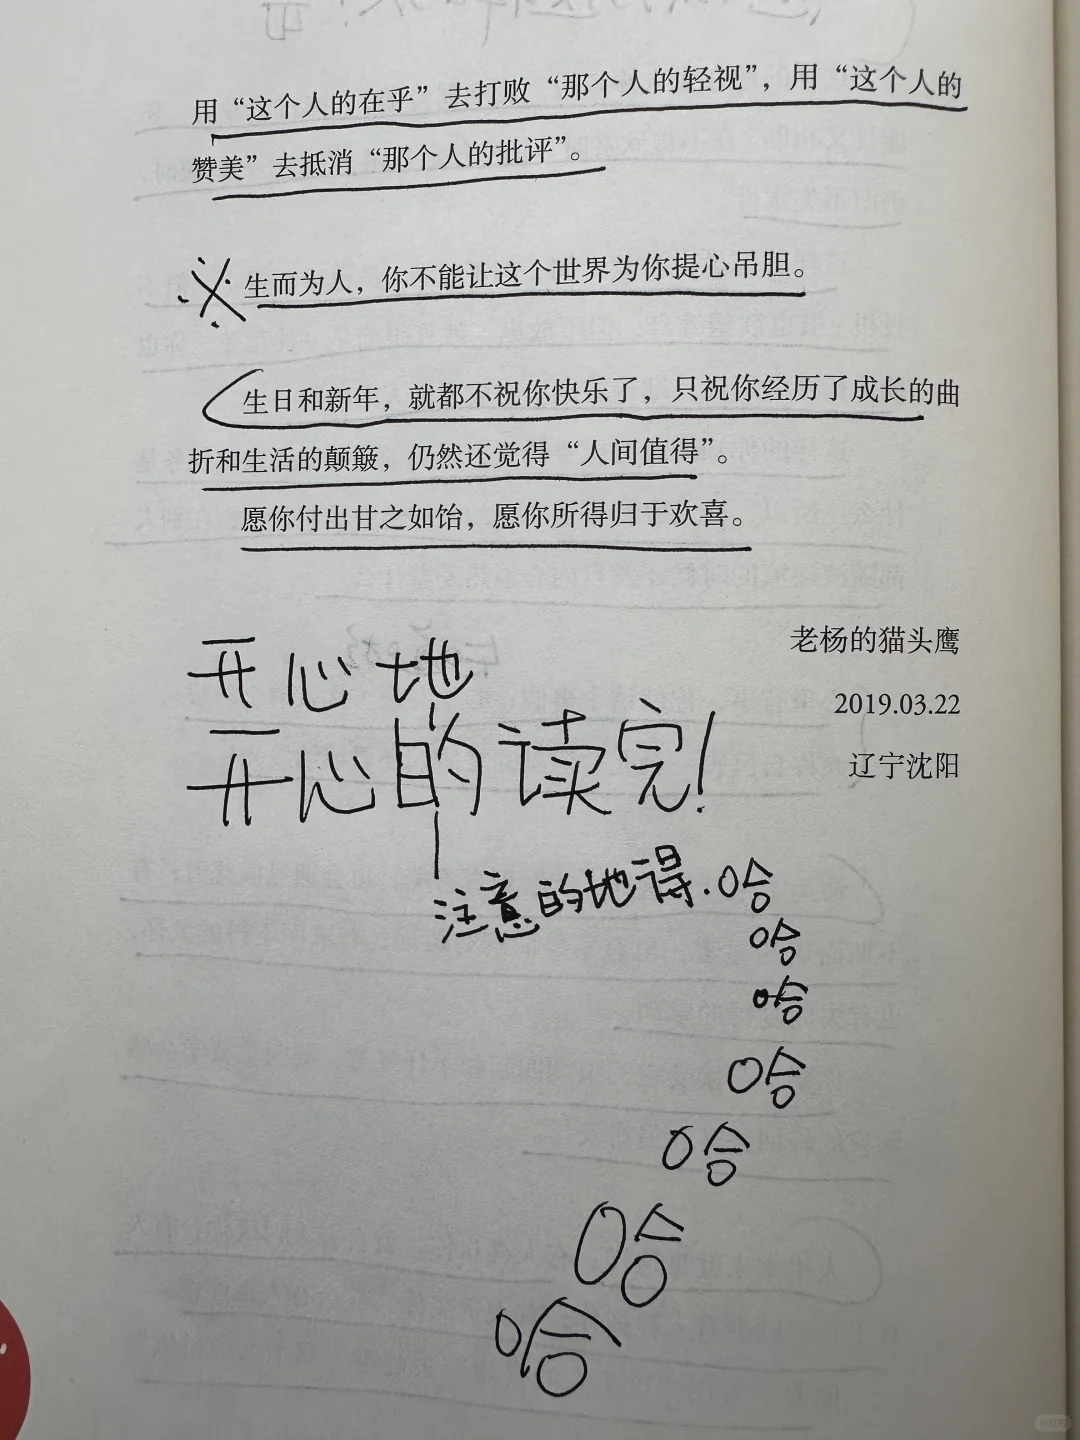 用“这个人的在乎”去打败“那个人的轻视”，用“这个人的
赞美”去抵消“那个人的批评”。
生而为人，你不能让这个世界为你提心吊胆。
生日和新年，就都不祝你快乐了，只祝你经历了成长的曲
折和生活的颠簸，仍然还觉得“人间值得”。
愿你付出甘之如饴，愿你所得归于欢喜。
老杨的猫头鹰
2019.03.22
辽宁沈阳
开心地
开心的读完！
注意的地得.哈
哈
哈
哈
哈
哈
哈
小红书